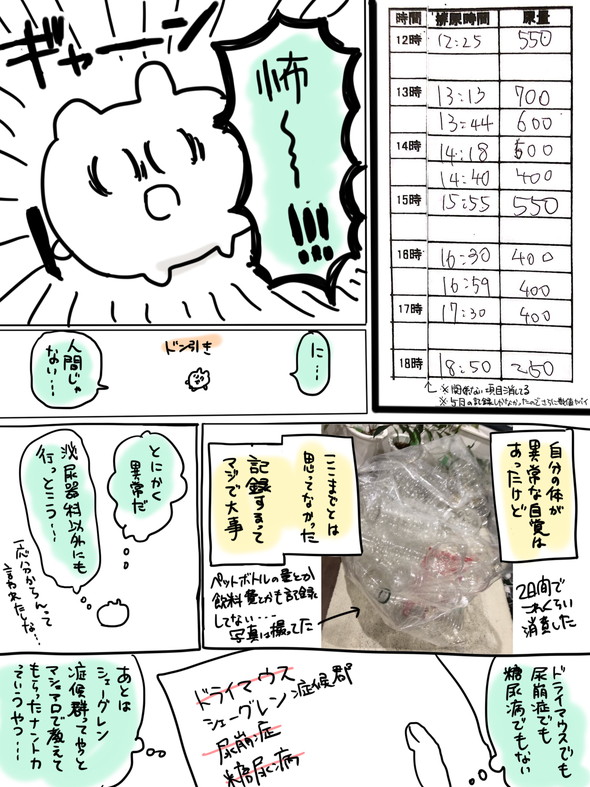 時間 排尿時間 尿量
12時 12:25 550
13時 13:13 700
13:44 600
14時 14:18 500
14:40 400
15時 15:55 550
16時 16:30 400
16:59 400
17時 17:30 400
18時 18:50 250
※関係ない項目消してる
ギャーン
怖〜!!!
に…
ドン引き
人間じゃ
ない…
自分の体が
異常な自覚は
あったけど
ここまでとは
思ってなかった
記録するって
マジで大事
2日間で
これくらい
消費した
ペットボトルの量とか
飲料量とかも記録
してない…
写真は撮ってた
とにかく
異常だ
泌尿器科以外にも
行っとこう…
ドライマウスでも
尿崩症でも
糖尿病でもない
ドライマウス
シェーグレン症候群
尿崩症
糖尿病
あとは
シェーグレン
症候群ってやつと
マシュマロで教えて
もらったナントカ
っていうやつ…